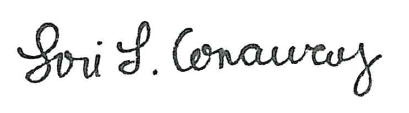 Lori L. Conaway